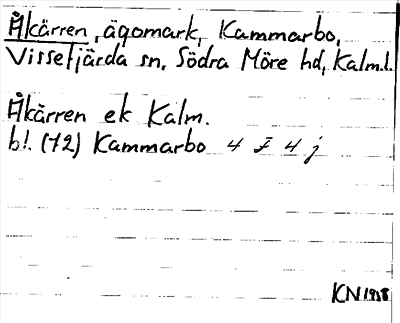 Åkärren, ägomark, Kammarbo,
Vissefjärda sn, Södra Möre hd, Kalm.l.
Åkärren ek Kalm.
bl. (72) Kammarbo 4 I 4 j
KN 1958